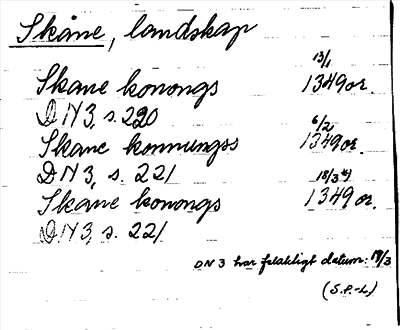 Skåne, landskap
13/1
Skane konongs 1349 or.
DN 3, s. 220
6/2
Skane konnungss 1349 or.
DN 3, s. 221
18/3 *)
Skane konongs 1349 or.
DN 3, s. 221
DN 3 har felaktigt datum: 19/3
(S.P.-L)